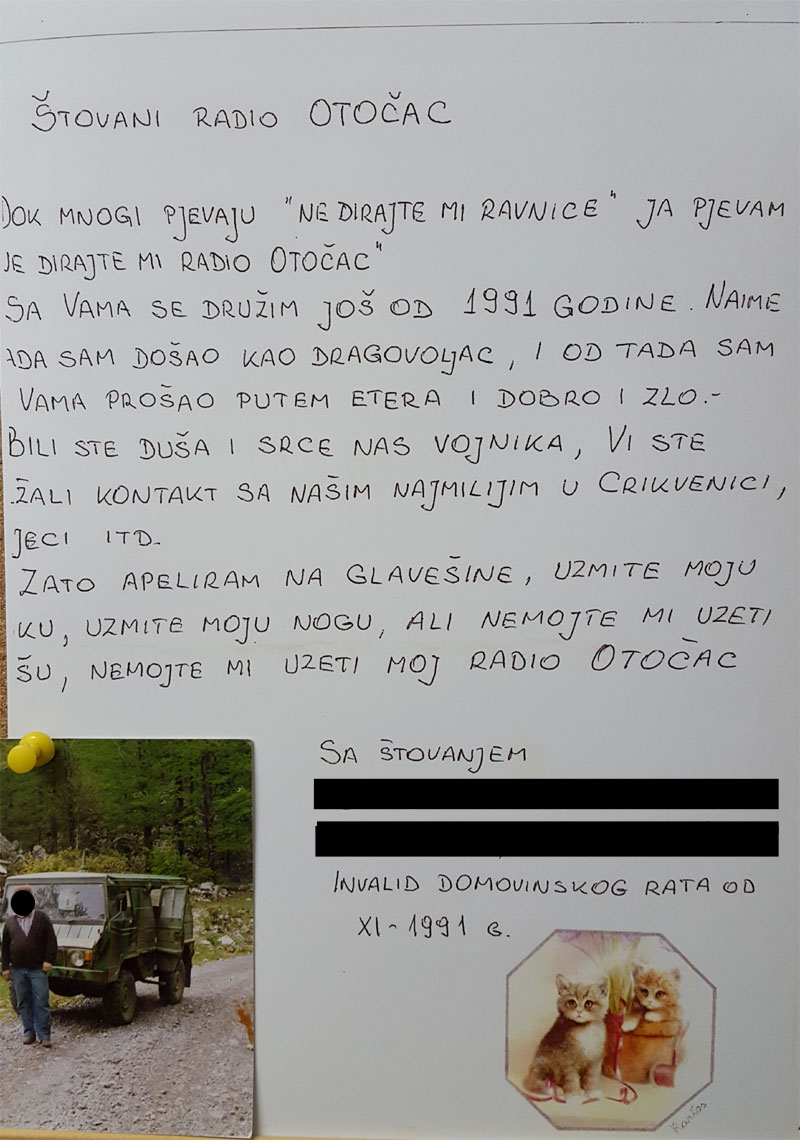 ŠTOVANI RADIO OTOČAC
DOK MNOGI PJEVAJU "NE DIRAJTE MI RAVNICE" JA PJEVAM
DIRAJTE MI RADIO OTOČAC"
SA VAMA SE DRUŽIM JOŠ OD 1991 GODINE. NAIME
SAM DOŠAO KAO DRAGOVOLJAC, I OD TADA SAM
VAMA PROŠAO PUTEM ETERA I DOBRO I ZLO.-
BILI STE DUŠA I SRCE NAS VOJNIKA, VI STE
ŽALI KONTAKT SA NAŠIM NAJMILIJIM U CRIKVENICI,
JECI ITD.
ZATO APELIRAM NA GLAVEŠINE, UZMITE MOJU
KU, UZMITE MOJU NOGU, ALI NEMOJTE MI UZETI
ŠU, NEMOJTE MI UZETI MOJ RADIO OTOČAC
SA ŠTOVANJEM
INVALID DOMOVINSKOG RATA OD
XI-1991 G.